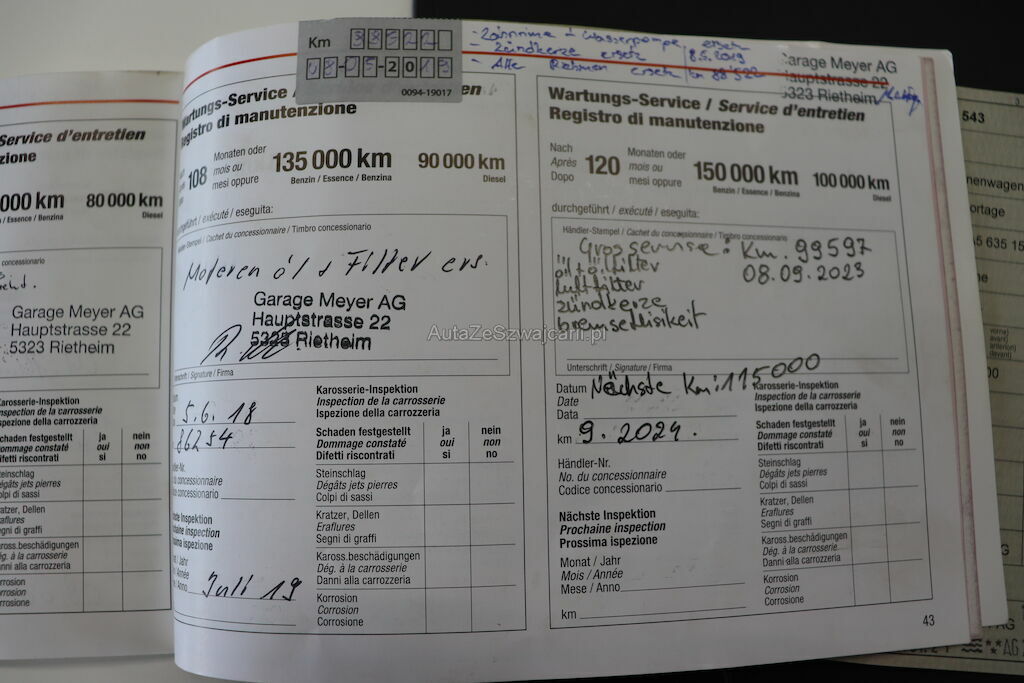 Service d'entretien
zione
000 km 80 000 km
/ Essence / Benzina Diesel
concessionario
Garage Meyer AG
Hauptstrasse 22
5323 Rietheim
Karosserie-Inspektion
Inspection de la carrosserie
Ispezione della carrozzeria
Schaden festgestellt ja nein
Dommage constaté oui non
Difetti riscontrati si no
Steinschlag
Dégâts jets pierres
Colpi di sassi
Kratzer, Dellen
Eraflures
Segni di graffi
Kaross.beschädigungen
Dég. à la carrosserie
Danni alla carrozzeria
Korrosion
Corrosion
Corrosione
Km
0094-19017
Wartungs-Service /
Registro di manutenzione
108 Monaten oder
mois ou
mesi oppure
135 000 km 90 000 km
Benzin / Essence / Benzina Diesel
durchgeführt / exécuté / eseguita:
Händler-Stempel / Cachet du concessionnaire / Timbro concessionario
Motoren öl + Filter ers.
Garage Meyer AG
Hauptstrasse 22
5323 Rietheim
Unterschrift / Signature / Firma
5.6.18
86254
Händler-Nr.
No. du concessionnaire
Codice concessionario
Nächste Inspektion
Prochaine inspection
Prossima ispezione
Monat / Jahr
Mois / Année
Mese / Anno Juli 19
Karosserie-Inspektion
Inspection de la carrosserie
Ispezione della carrozzeria
Schaden festgestellt ja nein
Dommage constaté oui non
Difetti riscontrati si no
Steinschlag
Dégâts jets pierres
Colpi di sassi
Kratzer, Dellen
Eraflures
Segni di graffi
Kaross.beschädigungen
Dég. à la carrosserie
Danni alla carrozzeria
Korrosion
Corrosion
Corrosione
- Wasserpumpe ersetz
- Zündkerze ersetz 8.5.2019
- Alle Riehmen ersetz km 88'522
Garage Meyer AG
Hauptstrasse 22
5323 Rietheim
Wartungs-Service / Service d'entretien
Registro di manutenzione
Nach
Après
Dopo
120 Monaten oder
mois ou
mesi oppure
150 000 km 100 000 km
Benzin / Essence / Benzina Diesel
durchgeführt / exécuté / eseguita:
Händler-Stempel / Cachet du concessionnaire / Timbro concessionario
Grosservise: Km. 99597
öl + ö. filter 08.09.2023
luftfilter
zündkerze
bremseflisikeit
Unterschrift / Signature / Firma
Nächste Km: 115000
Datum
Date
Data
km 9. 2024.
Händler-Nr.
No. du concessionnaire
Codice concessionario
Nächste Inspektion
Prochaine inspection
Prossima ispezione
Monat / Jahr
Mois / Année
Mese / Anno
km
Karosserie-Inspektion
Inspection de la carrosserie
Ispezione della carrozzeria
Schaden festgestellt ja nein
Dommage constaté oui non
Difetti riscontrati si no
Steinschlag
Dégâts jets pierres
Colpi di sassi
Kratzer, Dellen
Eraflures
Segni di graffi
Kaross.beschädigungen
Dég. à la carrosserie
Danni alla carrozzeria
Korrosion
Corrosion
Corrosione
43
543
nenwagen
ortage
635 15
AutaZeSzwajcarii.pl